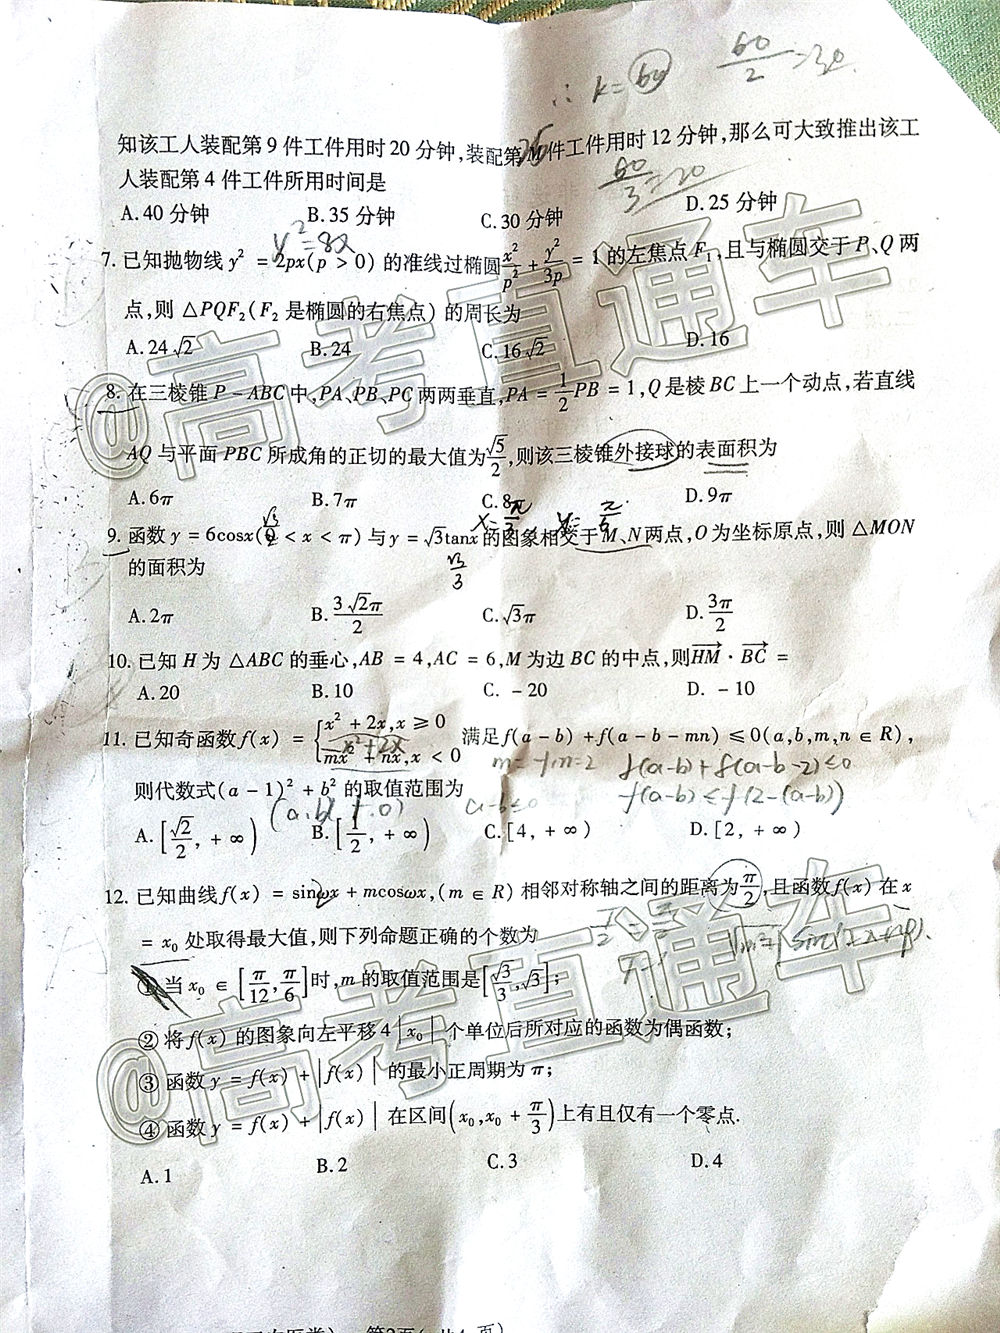 ∴ k=60  60/2=30
知该工人装配第 9 件工件用时 20 分钟,装配第 M 件工件用时 12 分钟,那么可大致推出该工
人装配第 4 件工件所用时间是
60/3=20
A. 40 分钟 B. 35 分钟 C. 30 分钟 D. 25 分钟
y²=8x
7. 已知抛物线 y² = 2px(p > 0) 的准线过椭圆 x²/p² + y²/3p = 1 的左焦点 F₁,且与椭圆交于 P、Q 两
点,则 △PQF₂(F₂ 是椭圆的右焦点) 的周长为
A. 24√2 B. 24 C. 16√2 D. 16
8. 在三棱锥 P - ABC 中,PA、PB、PC 两两垂直,PA = 1/2 PB = 1,Q 是棱 BC 上一个动点,若直线
AQ 与平面 PBC 所成角的正切的最大值为 √5/2,则该三棱锥外接球的表面积为
A. 6π B. 7π C. 8π D. 9π
9. 函数 y = 6cosx(0 < x < π) 与 y = √3tanx 的图象相交于 M、N 两点,O 为坐标原点,则 △MON
的面积为
√3/3
A. 2π B. 3√2π/2 C. √3π D. 3π/2
10. 已知 H 为 △ABC 的垂心,AB = 4,AC = 6,M 为边 BC 的中点,则 HM · BC =
A. 20 B. 10 C. - 20 D. - 10
11. 已知奇函数 f(x) = { x² + 2x,x ≥ 0
mx² + nx,x < 0 满足 f(a - b) + f(a - b - mn) ≤ 0(a,b,m,n ∈ R),
m=-1,n=2 f(a-b)+f(a-b-2)≤0
则代数式 (a - 1)² + b² 的取值范围为
f(a-b)≤f(2-(a-b))
A. [√2/2, + ∞) B. [1/2, + ∞) C. [4, + ∞) D. [2, + ∞)
12. 已知曲线 f(x) = sinωx + mcosωx,(m ∈ R) 相邻对称轴之间的距离为 π/2,且函数 f(x) 在 x
= x₀ 处取得最大值,则下列命题正确的个数为
① 当 x₀ ∈ [π/12,π/6] 时,m 的取值范围是 [√3/3,√3];
② 将 f(x) 的图象向左平移 4|x₀| 个单位后所对应的函数为偶函数;
③ 函数 y = f(x) + |f(x)| 的最小正周期为 π;
④ 函数 y = f(x) + |f(x)| 在区间 (x₀,x₀ + π/3) 上有且仅有一个零点.
A. 1 B. 2 C. 3 D. 4
@高考直通车
@高考直通车